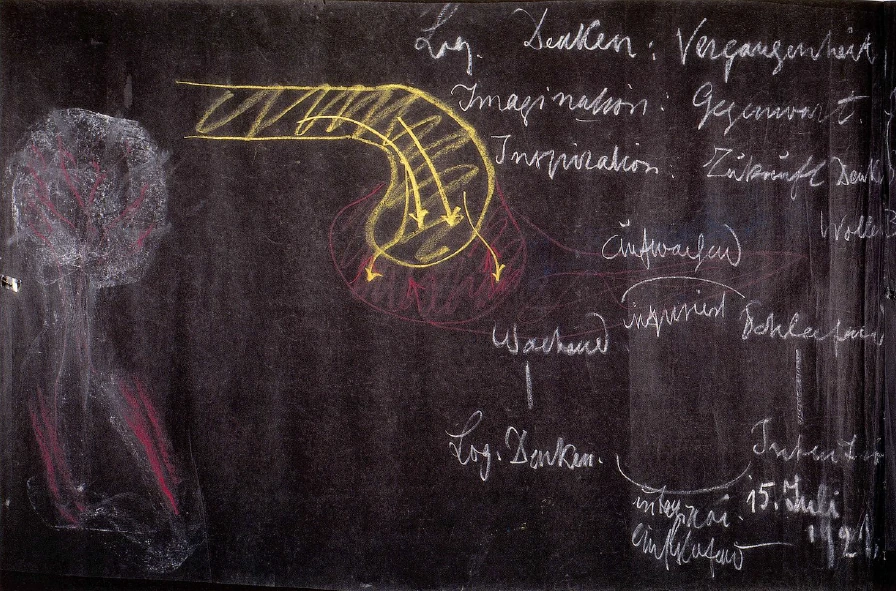 Log. Denken: Vergangenheit
Imagination: Gegenwart.
Inspiration: Zukunft Denk
Wolle
Aufwachend
inspiriert
Wachend
Schlafend
Log. Denken.
15. Juli
1921.
einschlafend